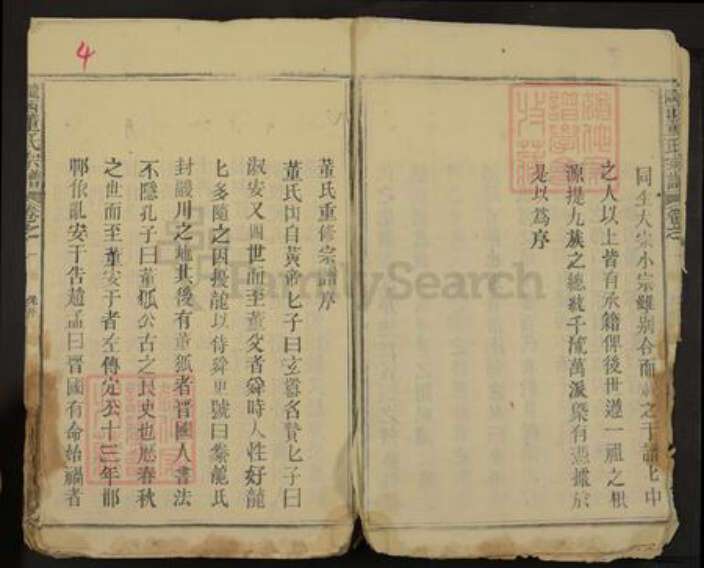 同生大宗小宗雖別合而 之于譜七中
之人以上皆有承籍俾後世遵一祖之根
源提九族之總統千流萬派槩有憑據於
是以為序
董氏重修宗譜序
董氏由自黃帝七子曰玄囂名贊七子曰
淑安又四世而至董父者舜時人性好龍
七多隨之因擾龍以侍舜 號曰豢龍氏
封鬷川之地其後有董狐者晉國人書法
不隱孔子曰董狐公古之良史也歷春秋
之世而至董安于者左傳定公十三年邯
鄲 亂安于告趙孟曰晉國有命始禍者
董氏宗譜 卷之一
董氏宗譜 卷之一
4
FamilySearch